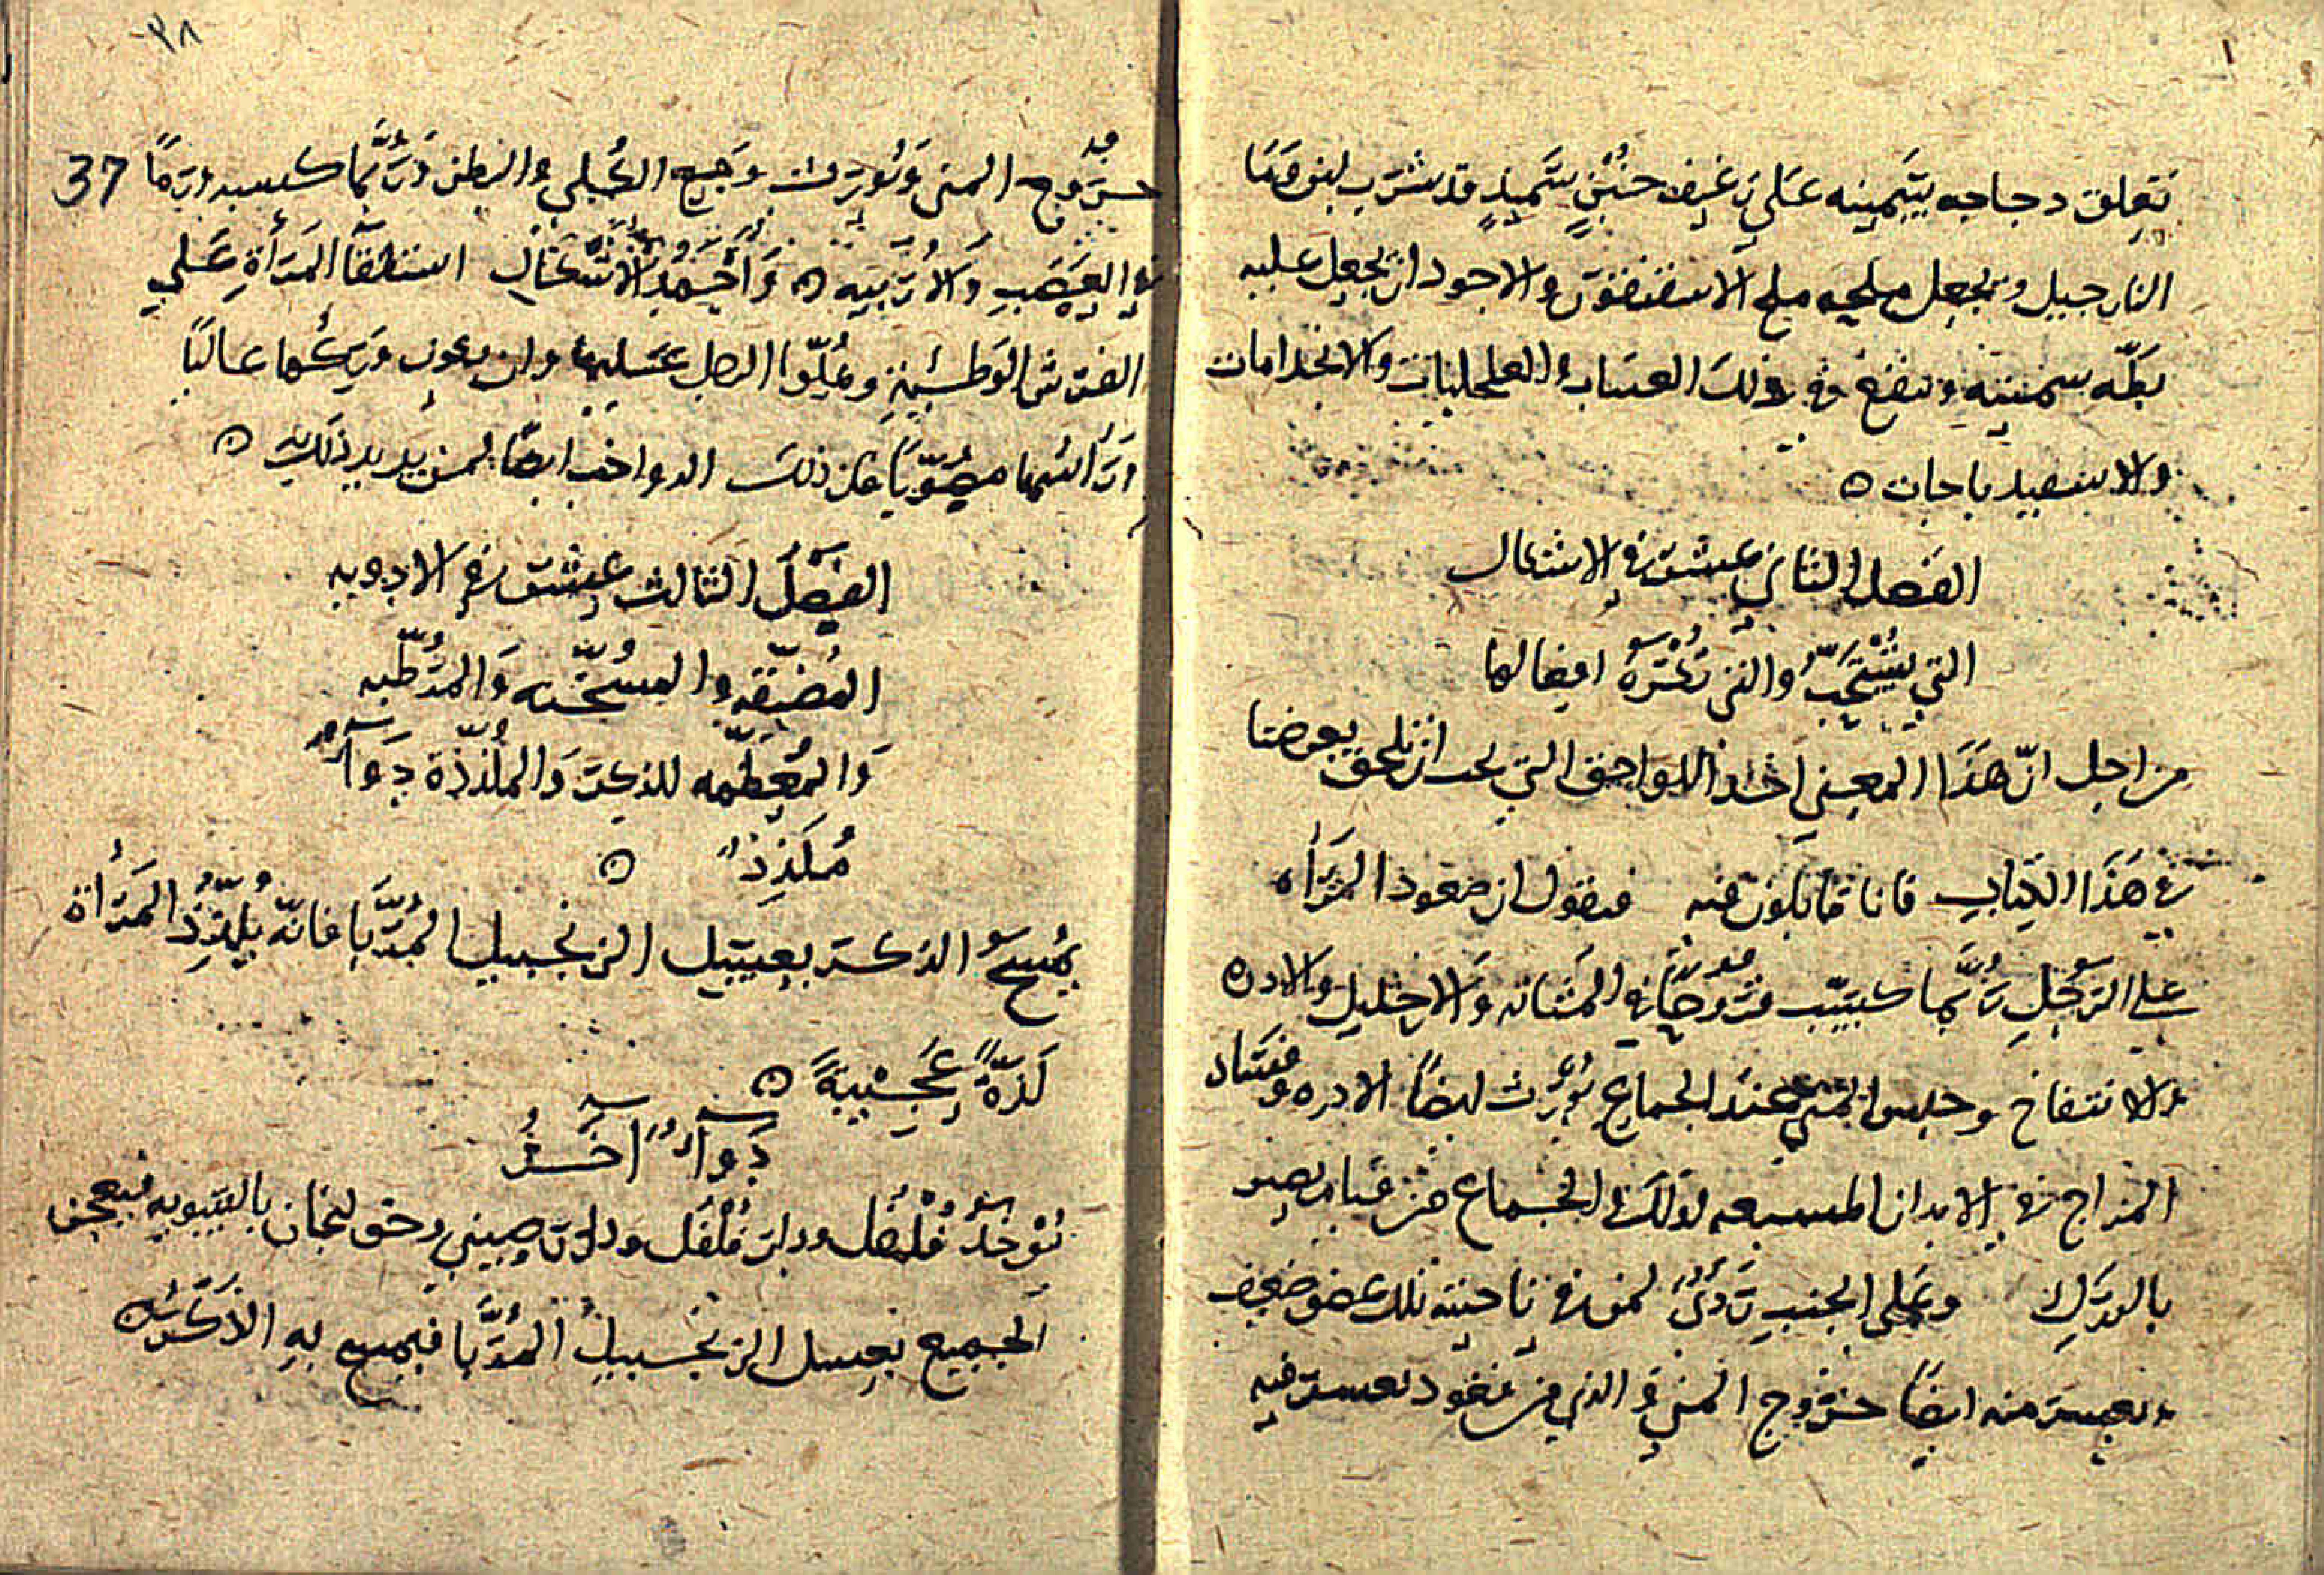 تعلق دجاجه سمينه على رغيف خبز سميد قد شرب لبن وما
النارجيل ويجعل ملحه ملح الاسقنقور والاجود ان يجعل عليه
بطه سمينه وينفع في ذلك العساب والهلامات
والاسفيدباجات ٥
الفصل الثاني عشر في الاشكال
التي تستحب والتي تكره افعالها
من اجل ان هذا المعنى احد اللواحق التي يجب ان تلحق بغرضنا
في هذا الكتاب فانا قائلون فيه فنقول ان صعود المرأه
على الرجل ربما كسب قروحا في المثانه والاحليل والادره
والانتفاخ وحبس المني عند الجماع يورث ايضا الادره وفساد
المزاج في الابدان كذلك الجماع من قيام يضر
بالورك وعلى الجنب ردئ لمن في ناحيته تلك عضو ضعيف
ويعسر منه ايضا خروج المني والذي من قعود يعسر فيه
٣٨
37
خروج المني ويورث وجع الكلى والبطن وربما كسب ورما
في القضيب والاربيه ٥ وأحمد الاشكال استلقا المرأة على
الفرش الوطئية وعلو الرجل عليها وان يكون وركها عاليا
ورأسها مصوبا فان ذلك الد واخف ايضا لمن يريد ذلك ٥
الفصل الثالث عشر في الادويه
المضيقه والمسخنه والمرطبه
والمعظمه للذكر والملذذة دواء
ملذذ ٥
يمسح الذكر بعسل الزنجبيل المربا فانه يلذذ المرأة
لذة عجيبة ٥
دواء آخر
يؤخذ فلفل ودار فلفل ودار صيني وخولنجان بالسويه فيعجن
الجميع بعسل الزنجبيل المربا فيمسح به الذكر